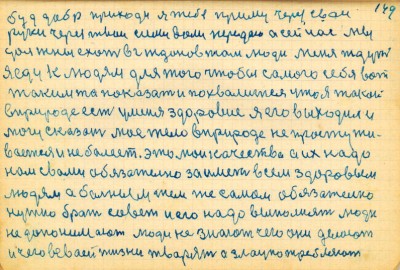 149
буд добр приходи я тебе приму через свои
руки через твои силы даю передаю а сейчас мы
должны ехать в Ждановском люди меня ждут
Я еду к людям для того чтобы самого себя вот
таким то показать и похвалится что я такой
в природе есть у меня здоровие я его выходил и
могу сказать мое тело в природе не простужи-
вается и не болеет. Это мои качества а их надо
нам с вами обязательно заиметь всем здоровым
людям а больным тем же самом обязательно
нужно брать совет и его надо выполнять люди
недопонимают люди не знают чего они делают
и чего в своей жизни творят а злоупотребляют